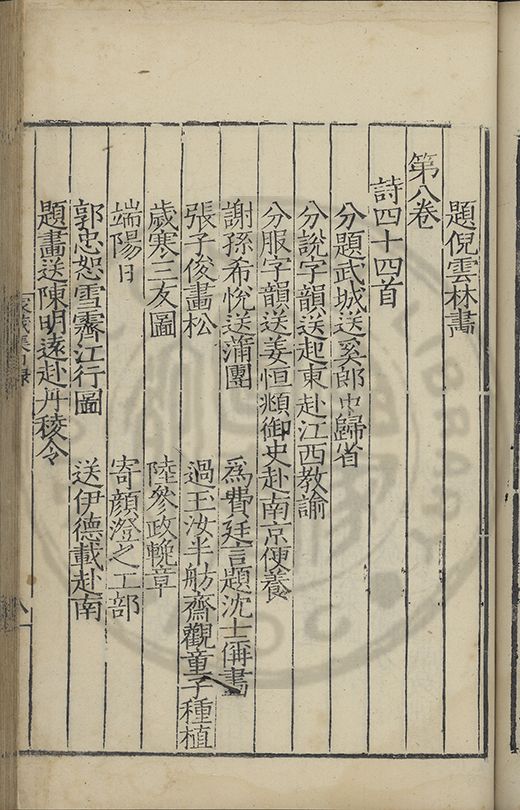 題倪雲林畫
第八卷
詩四十四首
分題武城送奚郎中歸省
分說字韻送起東赴江西教諭
分服字韻送姜恒頫御史赴南京便養
謝孫希悅送蒲團 爲費廷言題沈士偁畫
張子俊畫松 過王汝半舫齋觀童子種植
歲寒三友圖 陸參政輓章
端陽日 寄顏澄之工部
郭忠恕雪霽江行圖 送伊德載赴南
題畫送陳明遠赴丹稜令